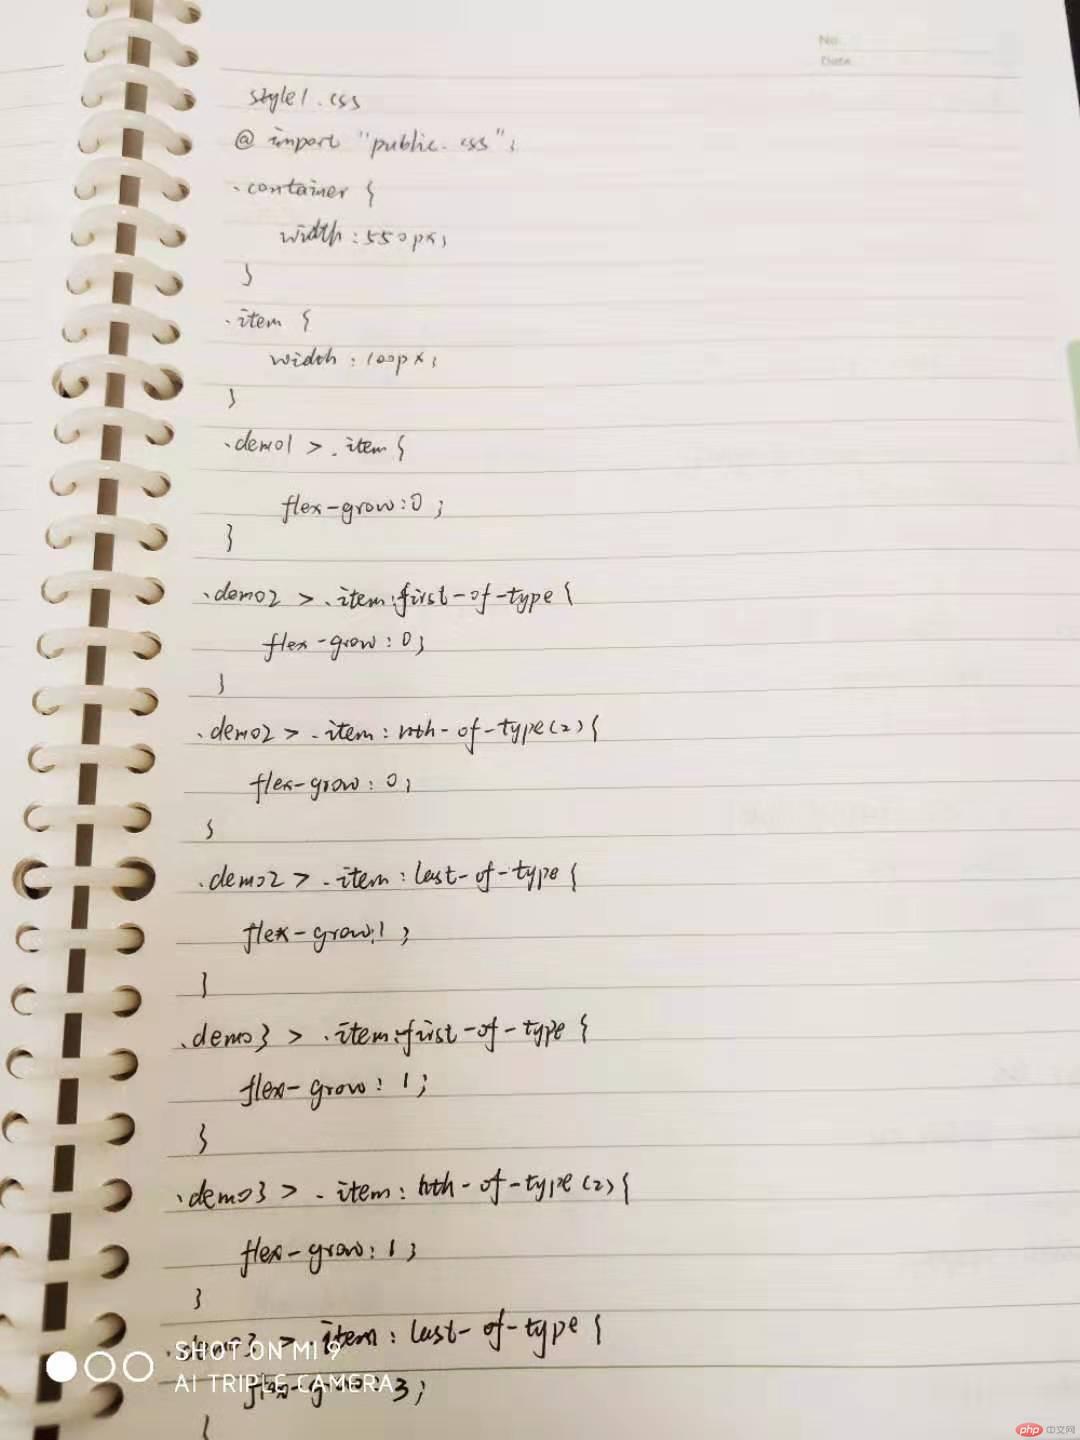 No.
Date
style1.css
@ import "public.css";
.container {
width:550px;
}
.item {
width:100px;
}
.demo1 > .item {
flex-grow:0;
}
.demo2 > .item:first-of-type {
flex-grow:0;
}
.demo2 > .item:nth-of-type(2){
flex-grow:0;
}
.demo2 > .item:last-of-type {
flex-grow:1;
}
.demo3 > .item:first-of-type {
flex-grow:1;
}
.demo3 > .item:nth-of-type(2){
flex-grow:1;
}
.demo3 > .item:last-of-type {
flex-grow:3;
}
SHOT ON MI 9
AI TRIPLE CAMERA
php中文网